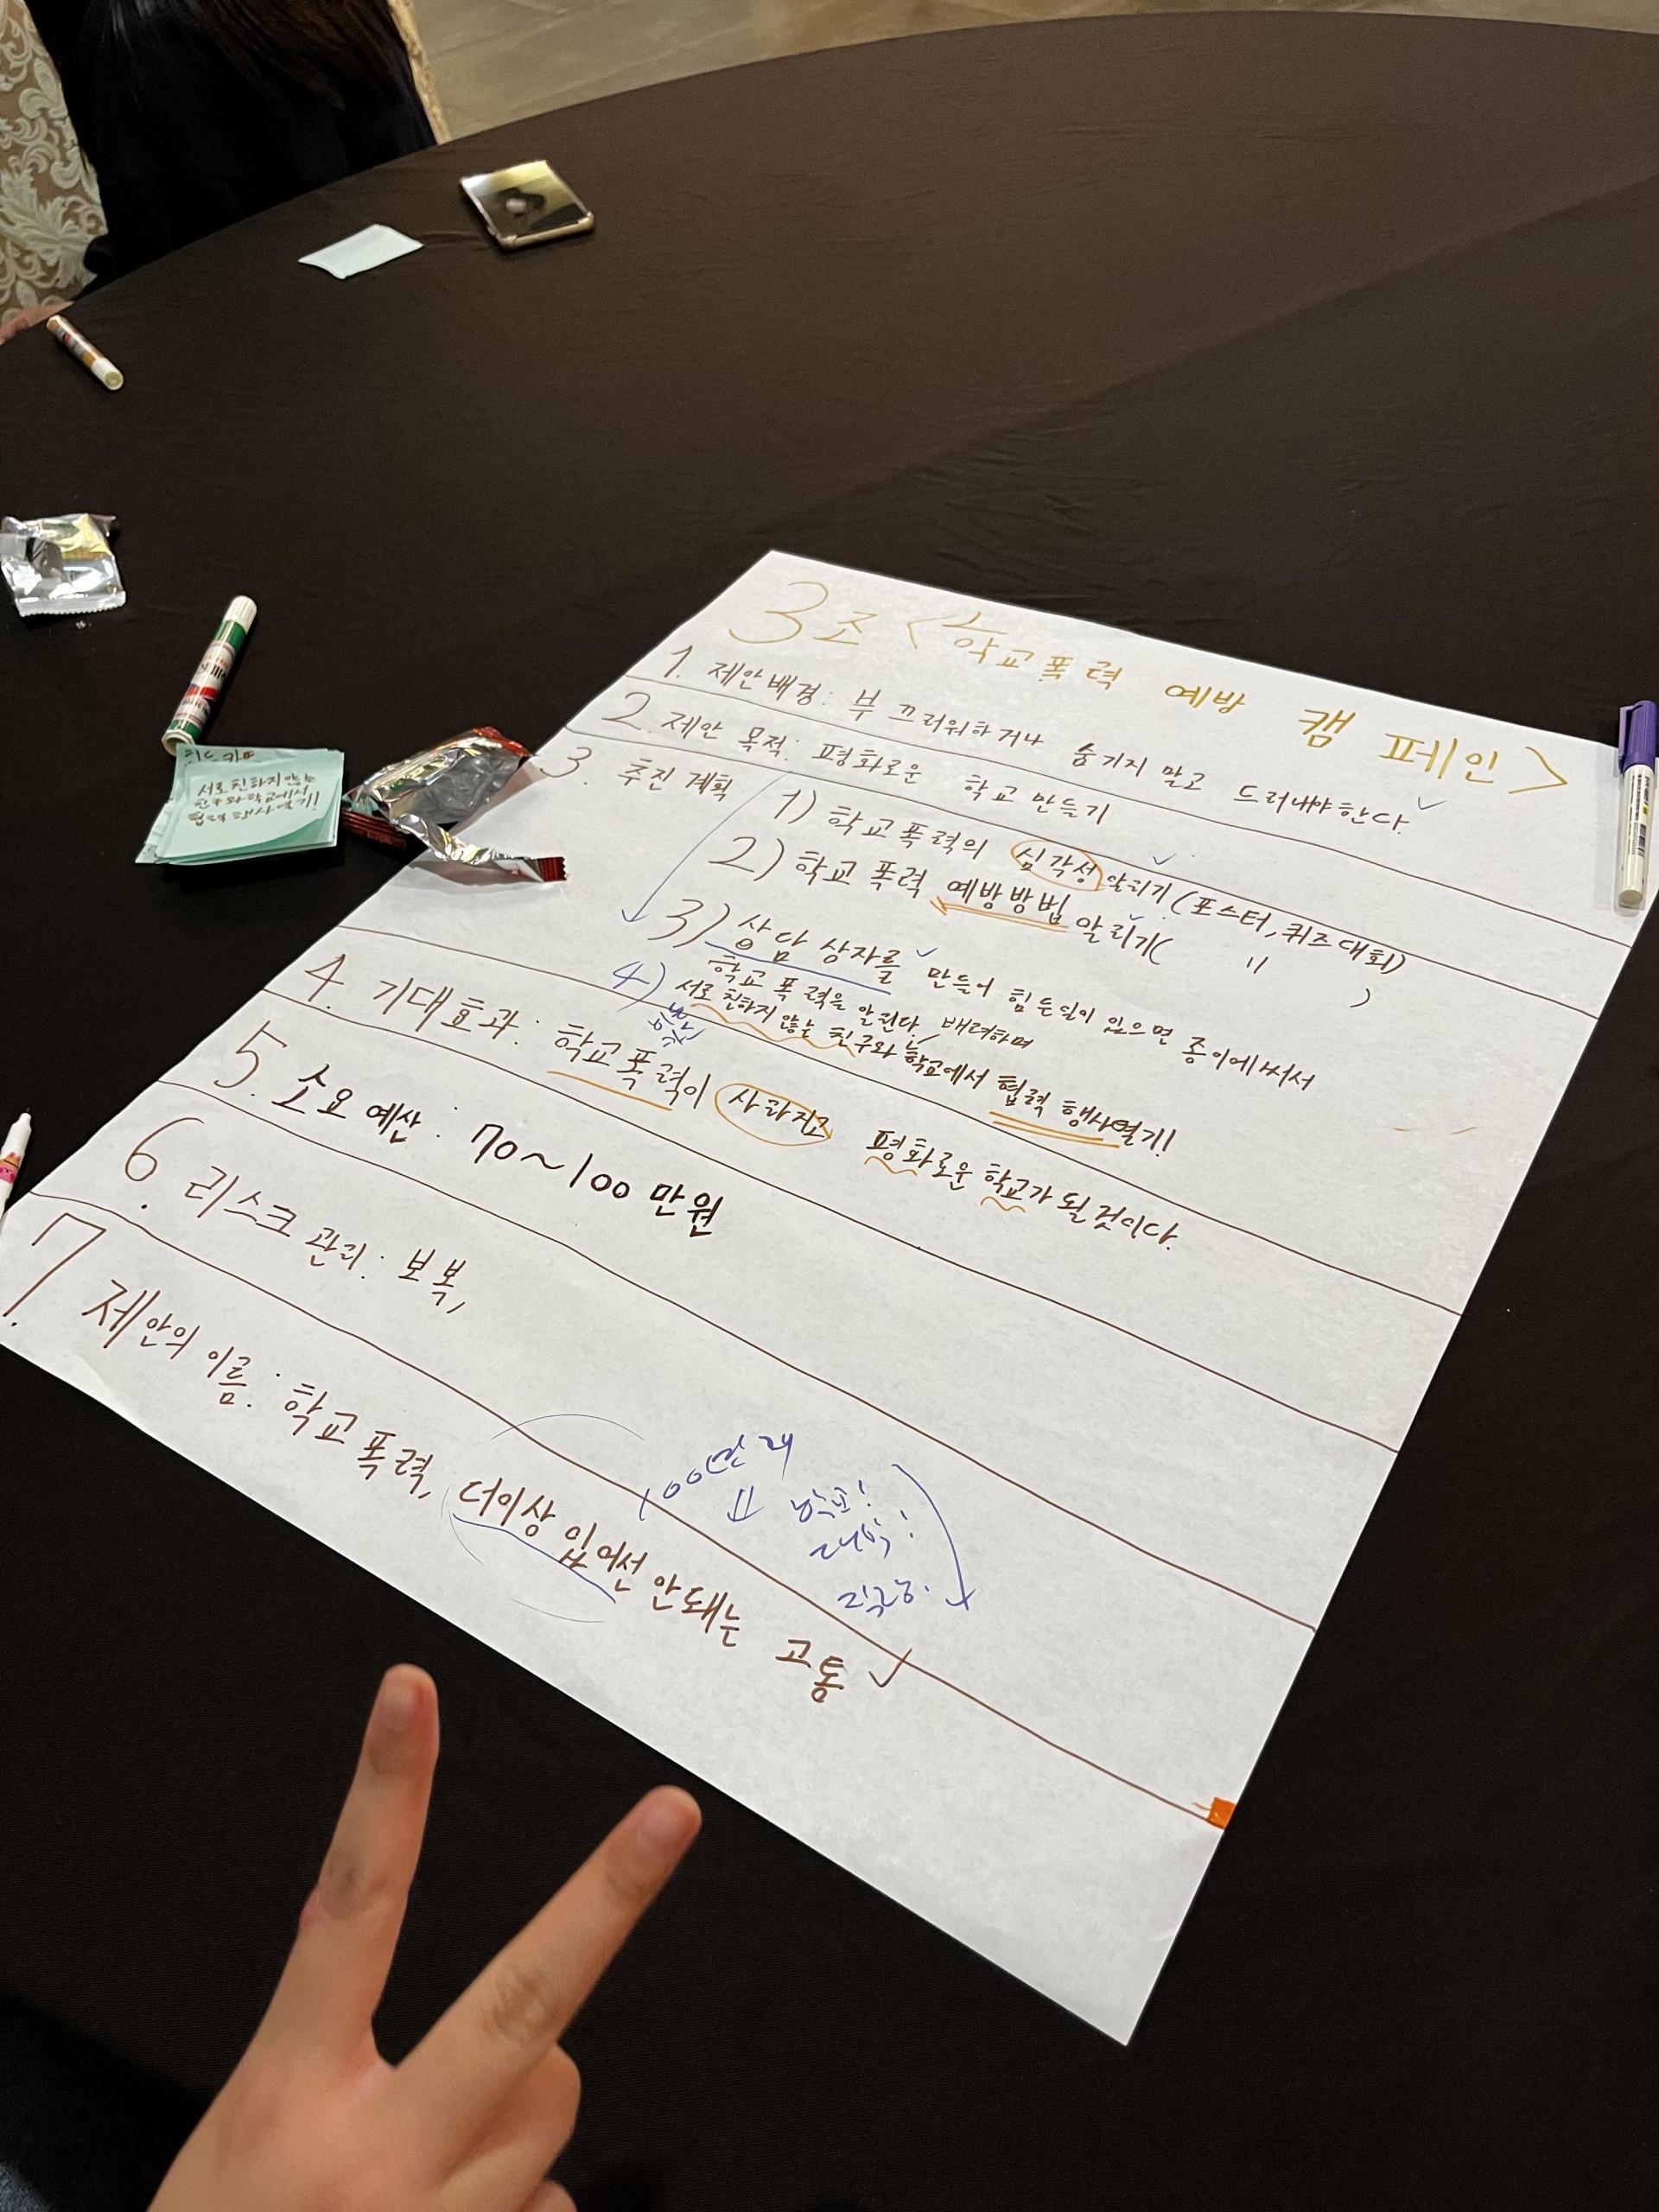 3조 <학교폭력 예방 캠페인>
1. 제안배경: 부끄러워하거나 숨기지 말고 드러내야한다.
2. 제안 목적: 평화로운 학교 만들기
3. 추진 계획
1) 학교폭력의 심각성 알리기 (포스터, 퀴즈대회)
2) 학교 폭력 예방방법 알리기( 〃 )
3) 상담 상자를 만들어 힘든일이 있으면 종이에 써서
학교 폭력을 알린다. 배려하며
4) 서로 친하지 않는 친구와 학교에서 협력 행사열기!
4. 기대효과: 학교폭력이 사라지고 평화로운 학교가 될 것이다.
5. 소요 예산: 70~100만원
6. 리스크 관리: 보복,
7. 제안의 이름: 학교폭력, 더이상 있어선 안돼는 고통
서로 친하지 않는
친구와 학교에서
협력 행사열기!